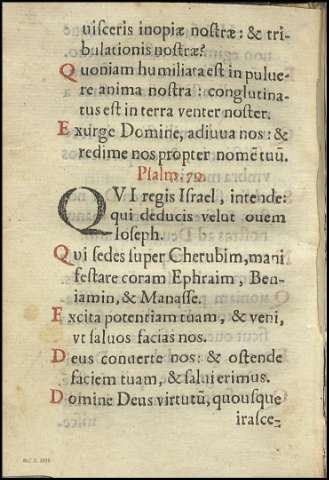 uisceris inopiæ nostræ: & tri-
bulationis nostræ?
Quoniam humiliata est in pulue-
re anima nostra: conglutina-
tus est in terra venter noster.
Exurge Domine, adiuua nos: &
redime nos propter nomē tuū.
Psalm. 79.
QVI regis Israel, intende:
qui deducis velut ouem
Ioseph.
Qui sedes super Cherubim, mani
festare coram Ephraim, Ben-
iamin, & Manasse.
Excita potentiam tuam, & veni,
vt saluos facias nos.
Deus conuerte nos: & ostende
faciem tuam, & salui erimus.
Domine Deus virtutū, quousque
irasce-